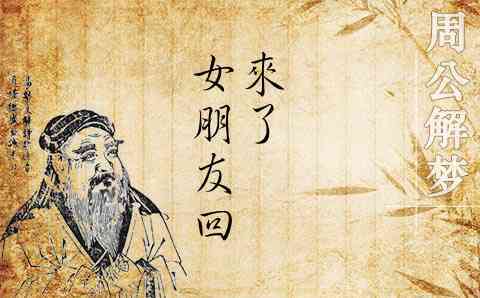 周公解梦
女朋友回
來了